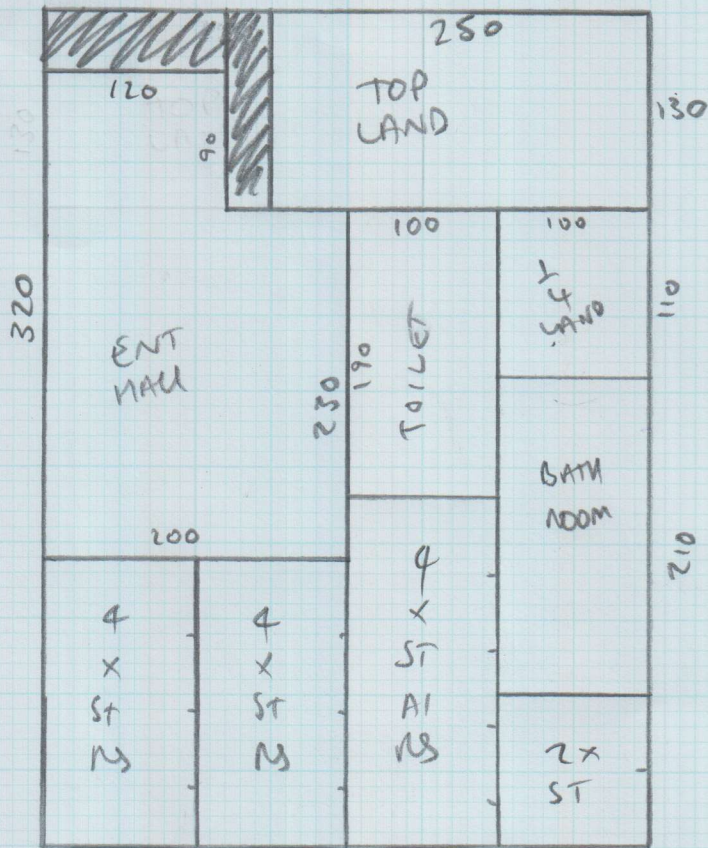 250
120
TOP
LAND
130
90
100
100
320
ENT
HALL
230
190
TOILET
LAND
110
BATH
ROOM
210
200
4
X
ST
RS
4
X
ST
RS
4
X
ST
AI
RS
2X
ST